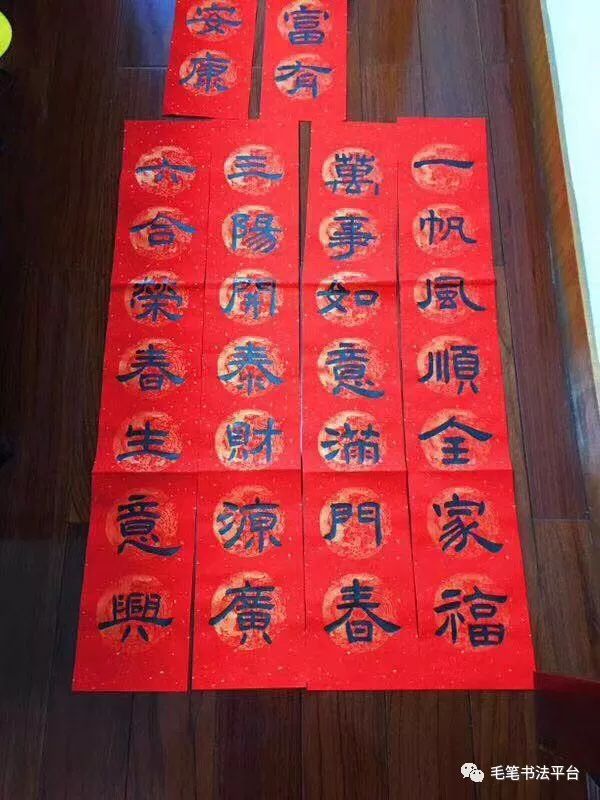 富有
安康
一帆風順全家福
萬事如意滿門春
三陽開泰財源廣
六合榮春生意興
毛笔书法平台